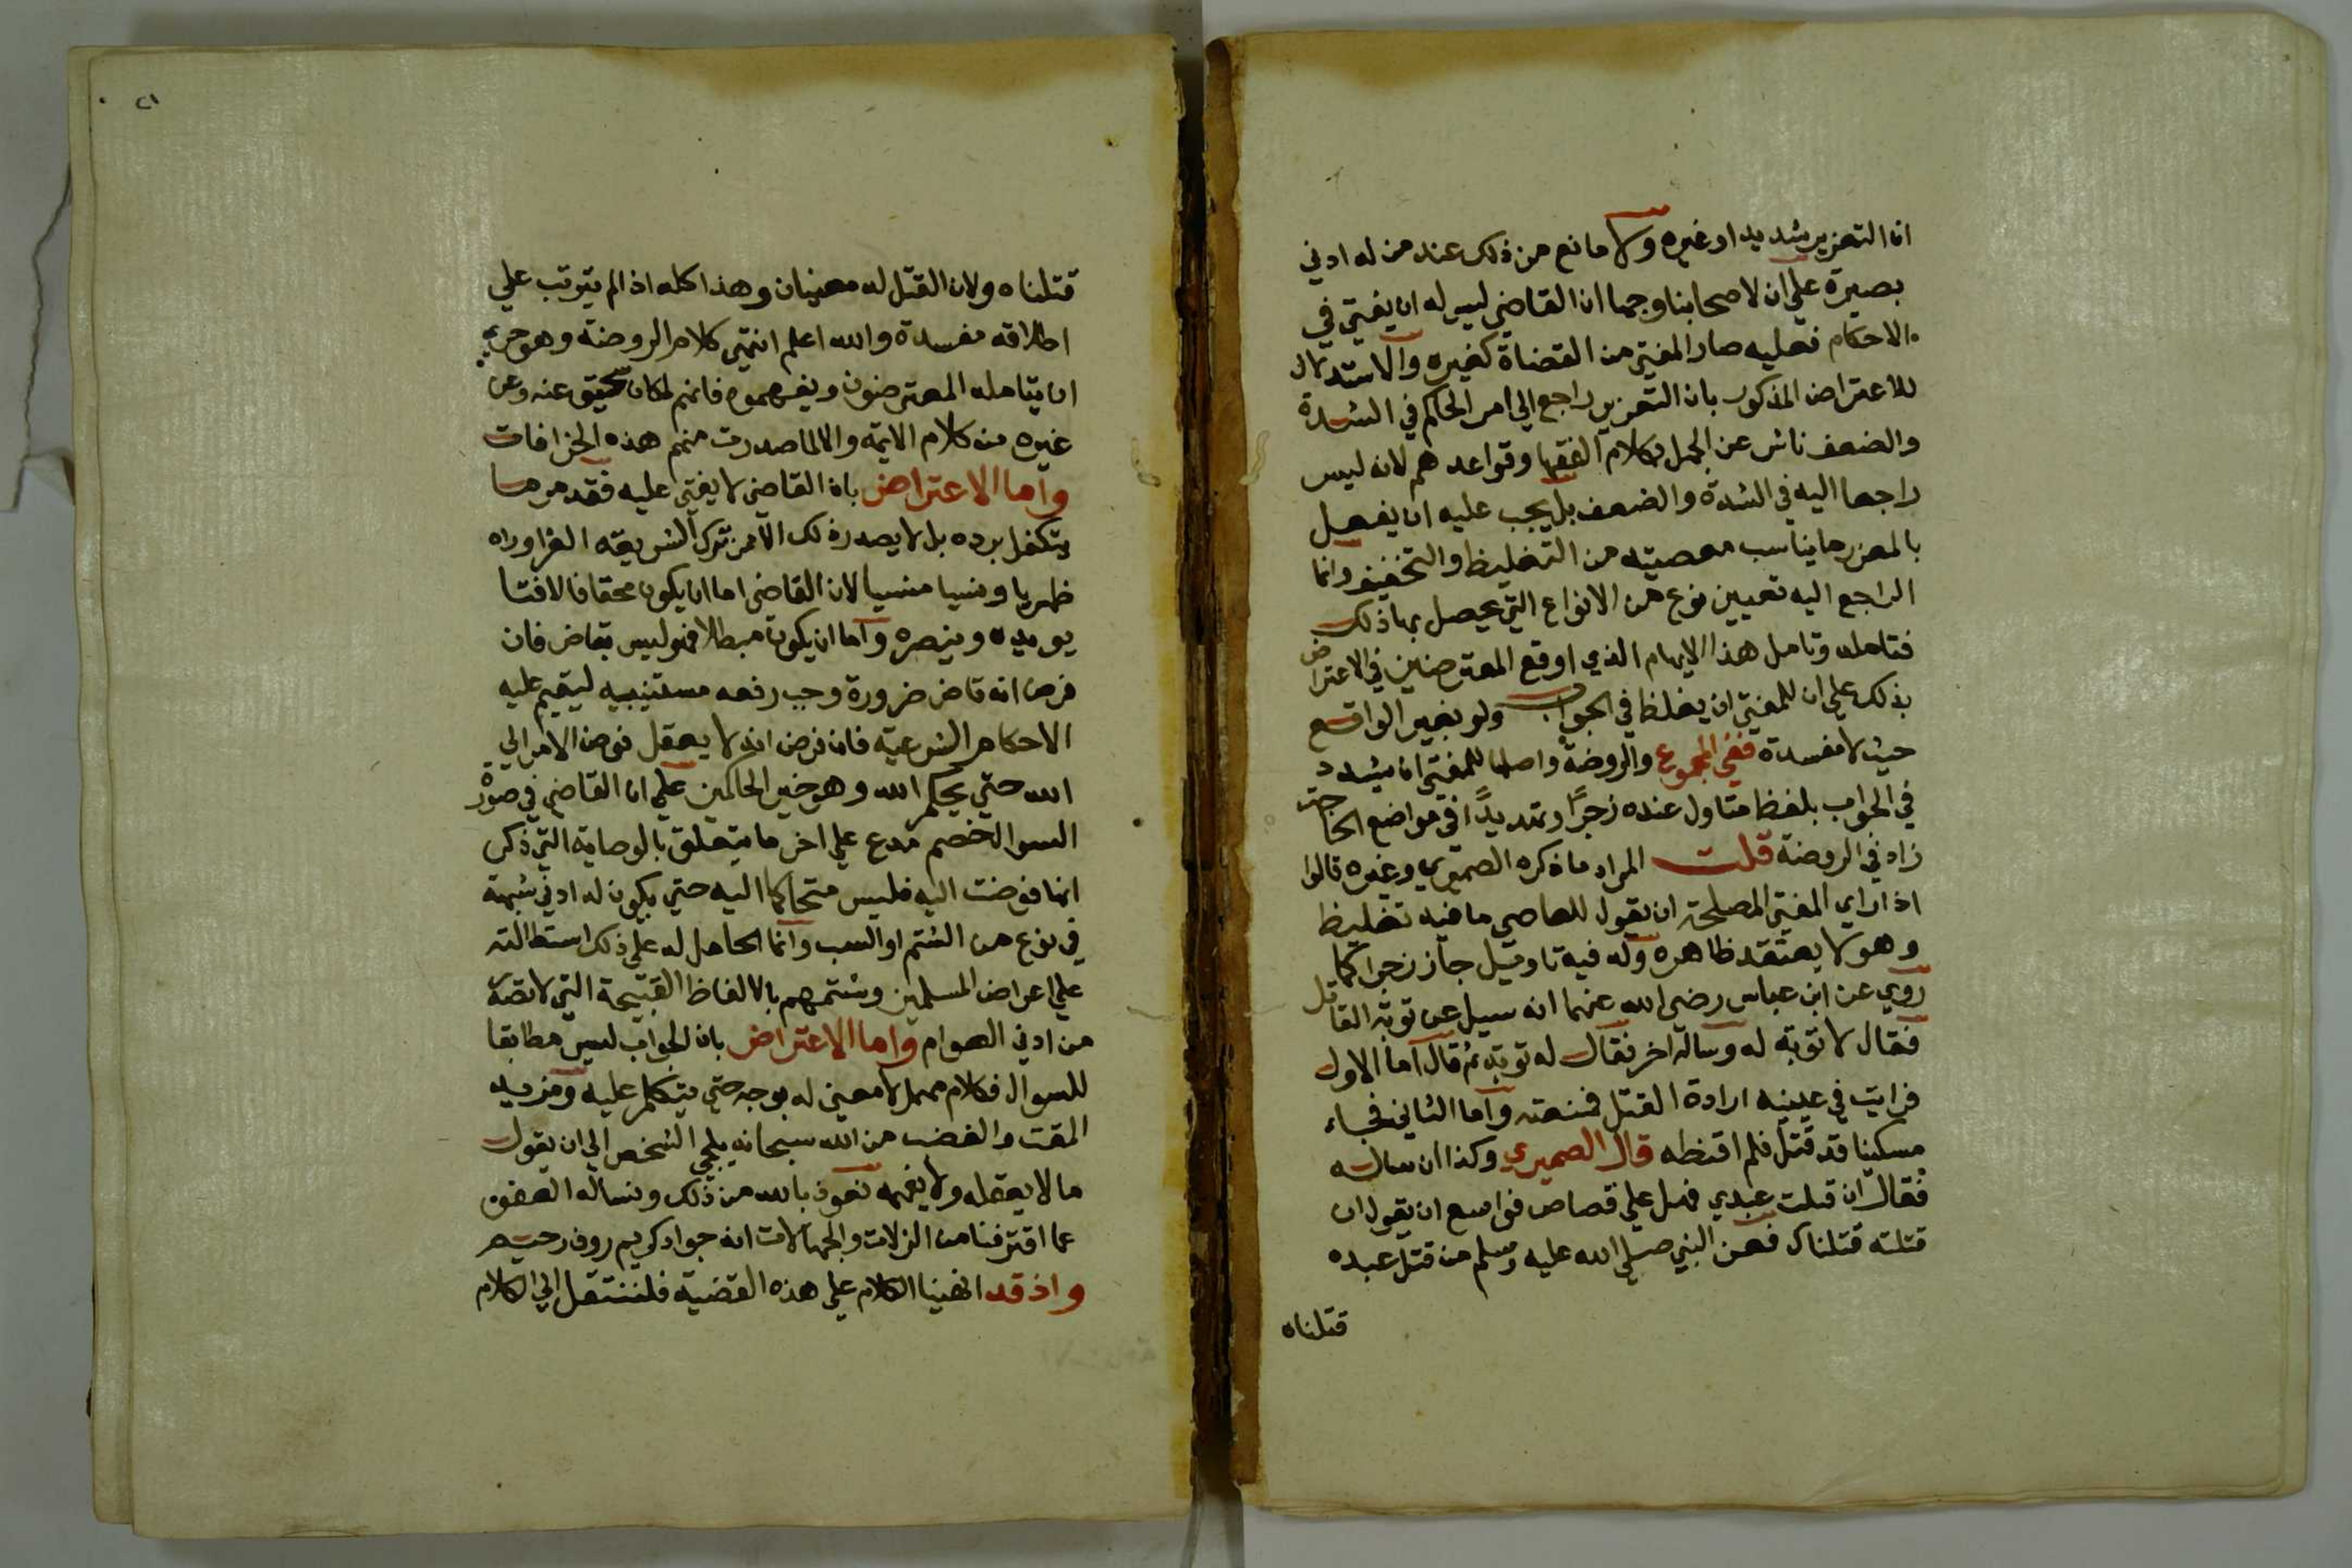 ان التعزير شديد او غيره ولا مانع من ذلك عند من له ادني
بصيرة علي ان لاصحابنا وجها ان القاضي ليس له ان يفتي في
الاحكام فعليه صار المفتي من القضاة كغيره والاستدلال
للاعتراض المذكور بان التعزير راجع الي امر الحاكم في الشدة
والضعف ناش عن الجهل بكلام الفقها وقواعدهم لانه ليس
راجعا اليه في الشدة والضعف بل يجب عليه ان يفعل
بالمعزر ما يناسب معصيته من التغليظ والتخفيف وانما
الراجع اليه تعيين نوع من الانواع التي يحصل بها ذلك
فتامله وتامل هذا الايهام الذي اوقع المعترضين في الاعتراض
بذلك علي ان للمفتي ان يغلظ في الجواب ولو بغير الواقع
حيث لا مفسدة ففي المجموع والروضة واصلها للمفتي ان يشدد
في الجواب بلفظ متاول عنده زجرًا وتهديدًا في مواضع الحاجة
زاد في الروضة قلت المراد ما ذكره الصميري وغيره قالوا
اذا راي المفتي المصلحة ان يقول للعاصي ما فيه تغليظ
وهو لا يعتقد ظاهره وله فيه تاويل جاز زجرا كما
روي عن ابن عباس رضي الله عنهما انه سيل عن توبة القاتل
فقال لا توبة له وساله اخر فقال له توبة ثم قال اما الاول
فرايت في عينيه ارادة القتل فمنعته واما الثاني فجاء
مسكينا قد قتل فلم اقنطه قال الصميري وكذا ان ساله
فقال ان قتلت عبدي فهل علي قصاص فواسع ان يقول ان
قتلته قتلناك فعن النبي صلي الله عليه وسلم من قتل عبده
قتلناه
٢١
قتلناه ولان القتل له معنيان وهذا كله اذا لم يترتب علي
اطلاقه مفسدة والله اعلم انتهي كلام الروضة وهو حري
ان يتامله المعترضون ويفهموه فانهم لمكان سحيق عنه وعن
غيره من كلام الايمة والا لما صدرت منهم هذه الخرافات
واما الاعتراض بان القاضي لا يفتي عليه فقد مر ما
يتكفل برده بل لا يصدر ذلك الا ممن ترك الشريعة الغرا وراه
ظهريا ونسيا منسيا لان القاضي اما ان يكون محقا فالافتا
يويده وينصره واما ان يكون مبطلا فهو ليس بقاض فان
فرض انه قاض ضرورة وجب رفعه مستنيبيه ليقيم عليه
الاحكام الشرعية فان فرض انه لا يعقل فوض الامر الي
الله حتي يحكم الله وهو خير الحاكمين علي ان القاضي في صورة
السوال خصم مدع علي اخر ما يتعلق بالوصاية التي ذكر
انها فوضت اليه فليس متحاكما اليه حتي يكون له ادني شبهة
في نوع من الشتم او السب وانما الحامل له علي ذلك استطالته
علي اعراض المسلمين وشتمهم بالالفاظ القبيحة التي لا تقع
من ادني العوام واما الاعتراض بان الجواب ليس مطابقا
للسوال فكلام مهمل لا معني له بوجه حتي يتكلم عليه ومزيد
المقت والغضب من الله سبحانه يلجي الشخص الي ان يقول
ما لا يعقله ولا يفهمه نعوذ بالله من ذلك ونساله العفو
عما اقترفنا من الزلات والجهالات انه جواد كريم روف رحيم
واذ قد انهينا الكلام علي هذه القضية فلننتقل الي الكلام